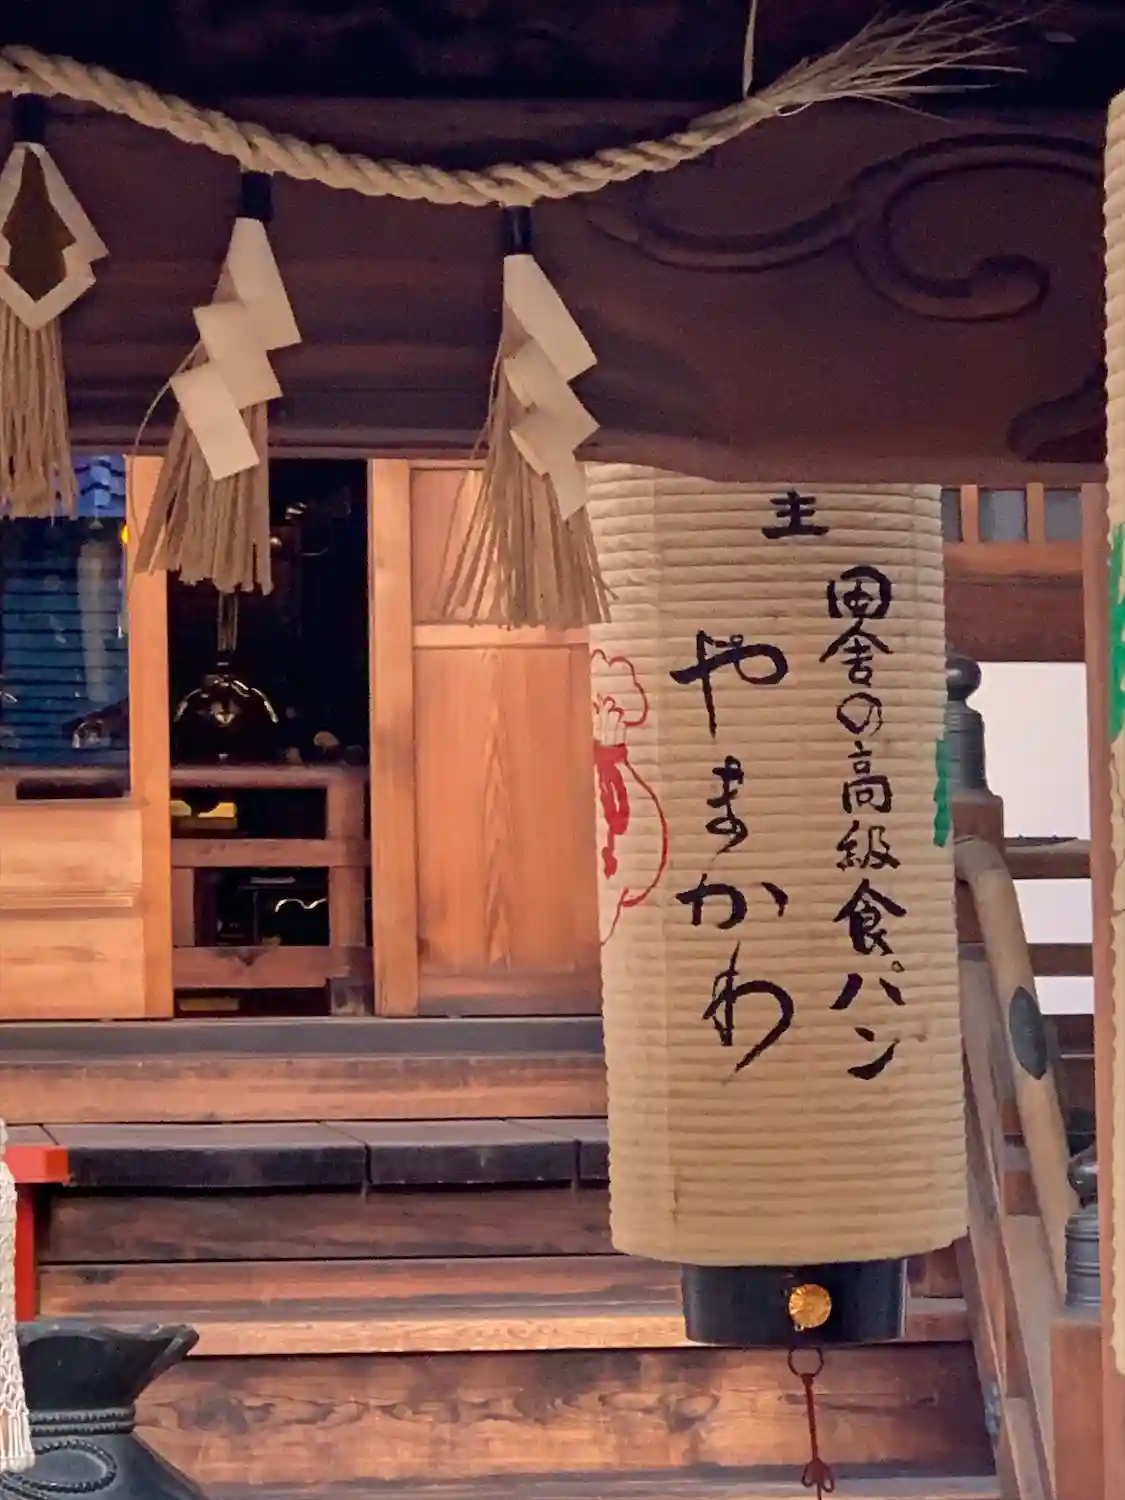 主
田舎の高級食パン
やまかわ